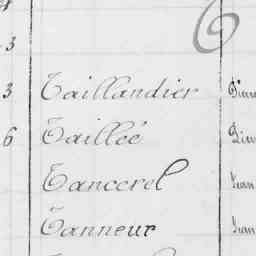 6
3
3 Taillandier
6 Taillée
Tancerel
Tanneur